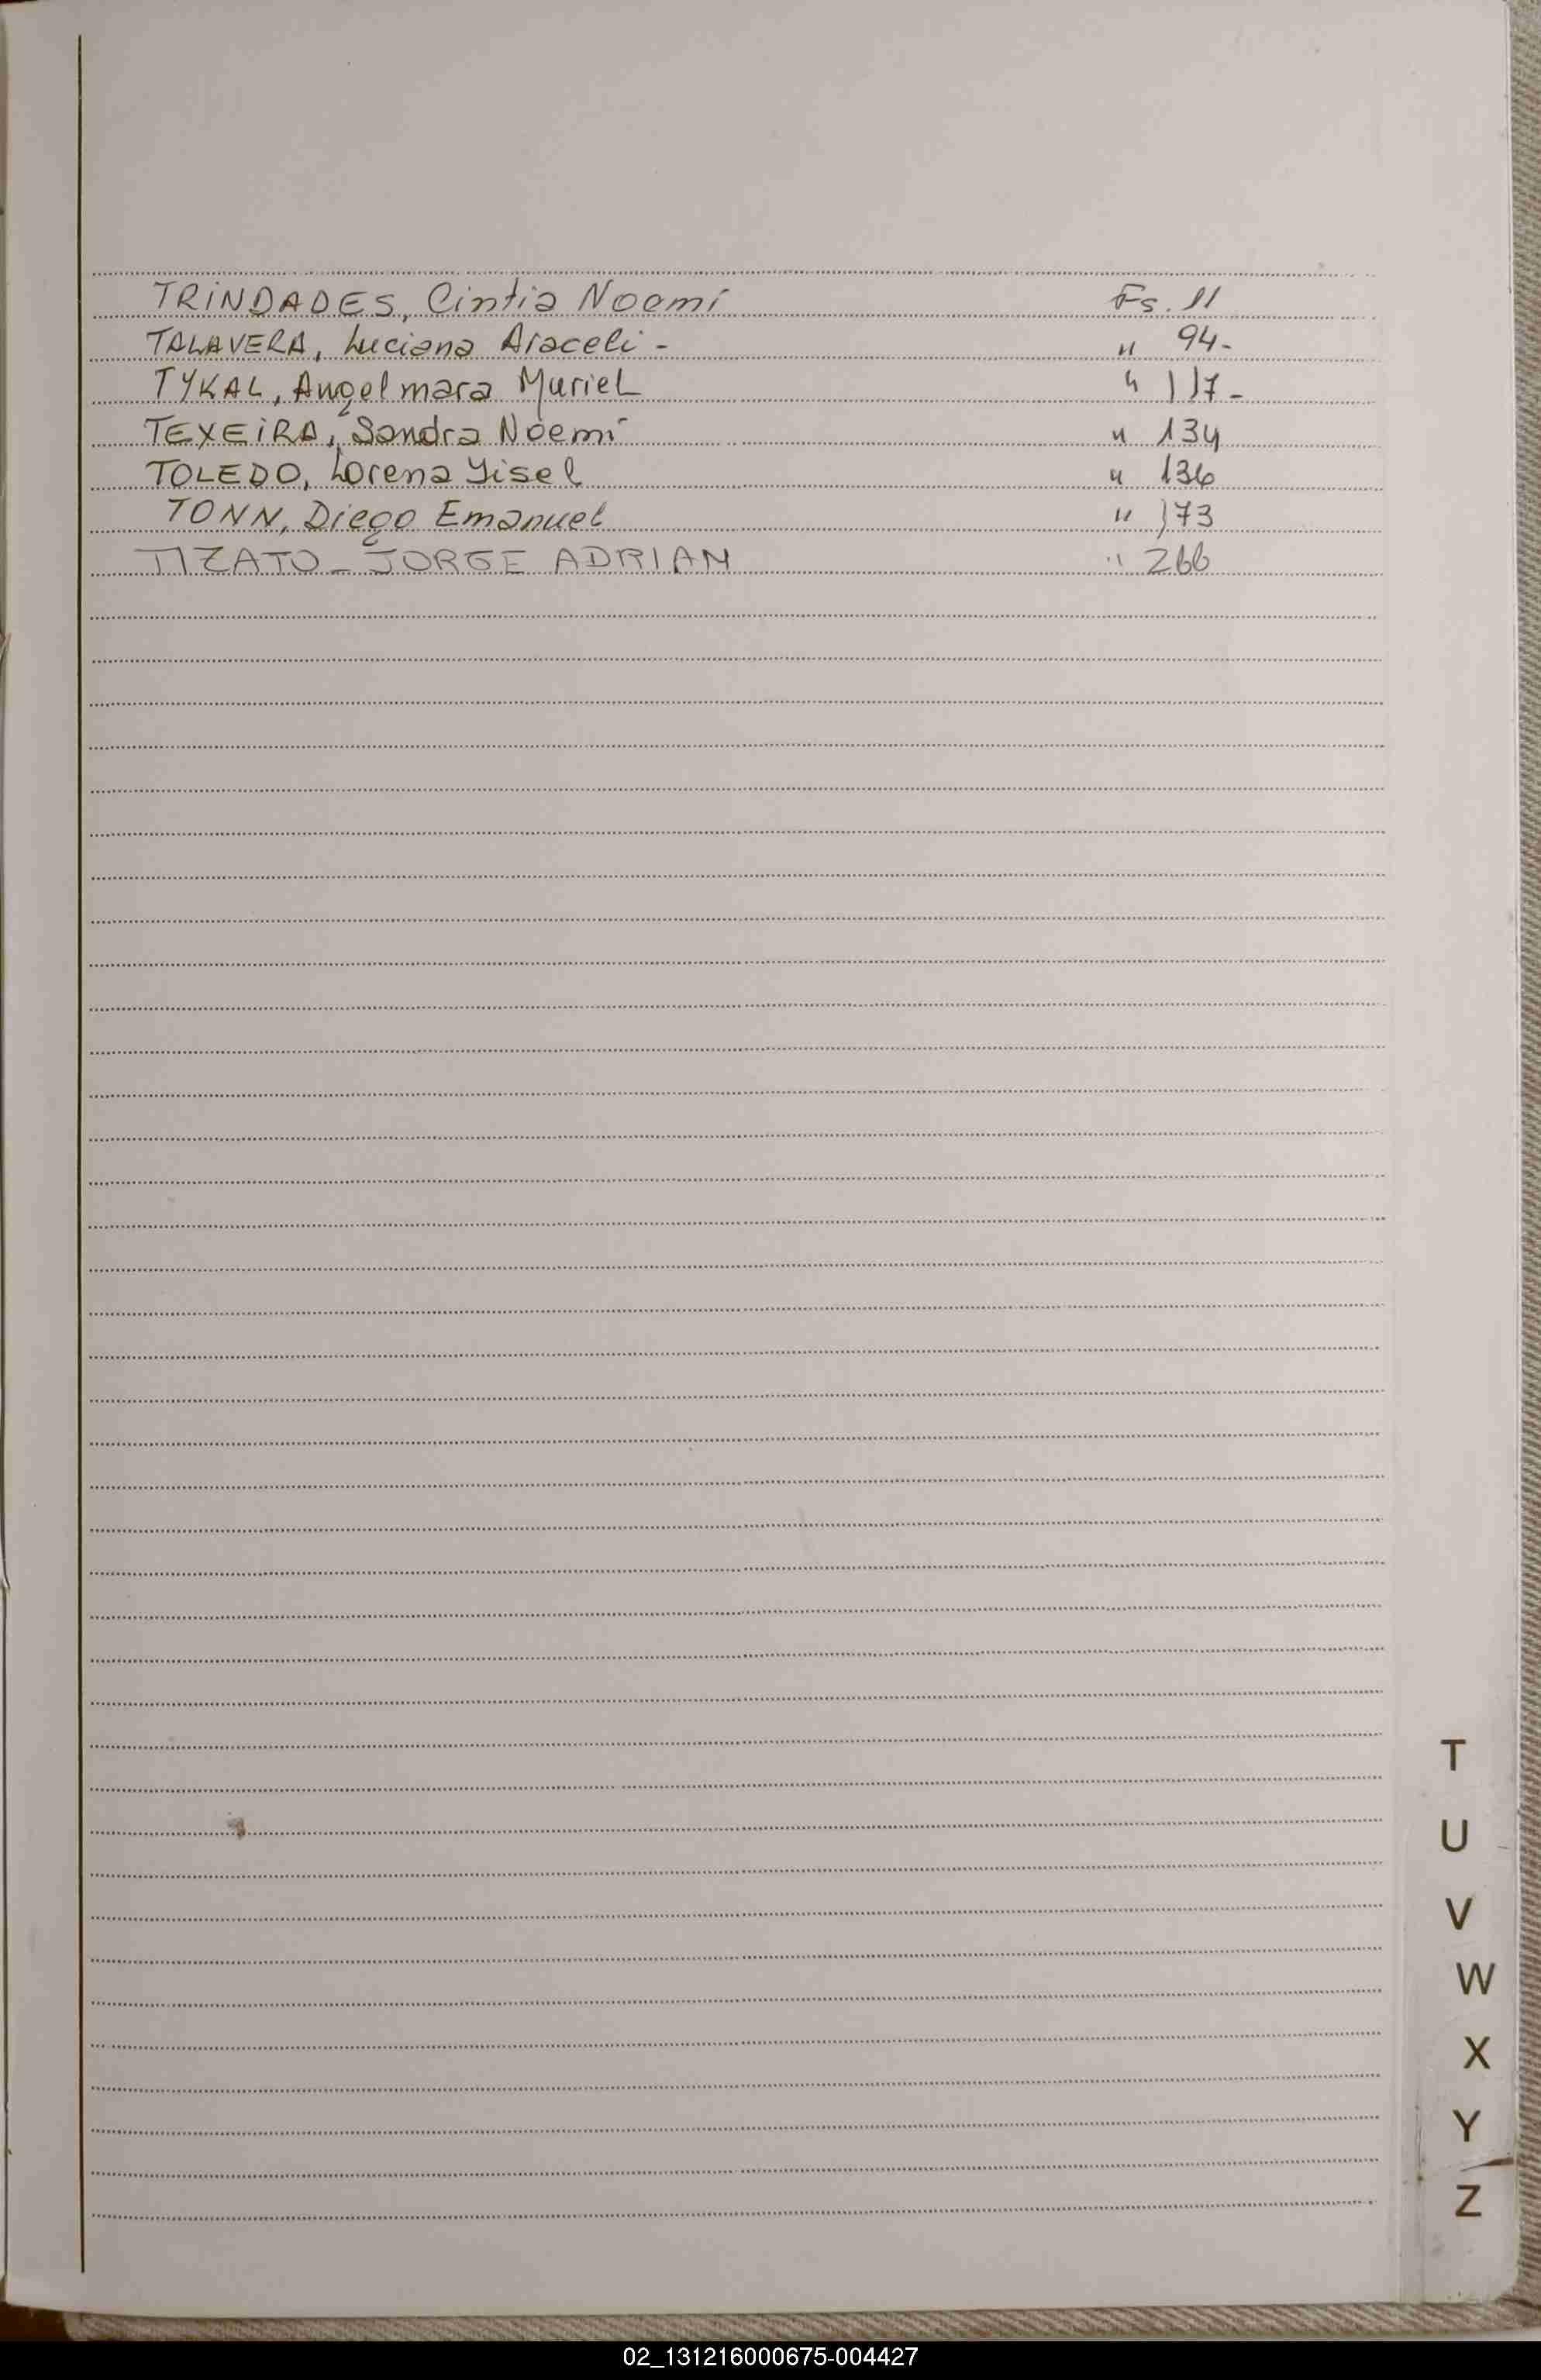 TRINDADES, Cintia Noemí Fs. 11
TALAVERA, Luciana Araceli - " 94-
TYKAL, Angelmara Muriel " 117-
TEXEIRA, Sandra Noemí " 134
TOLEDO, Lorena Yisel " 136
TONN, Diego Emanuel " 173
TIZATO - JORGE ADRIAN " 266
T
U
V
W
X
Y
Z
02_131216000675-004427